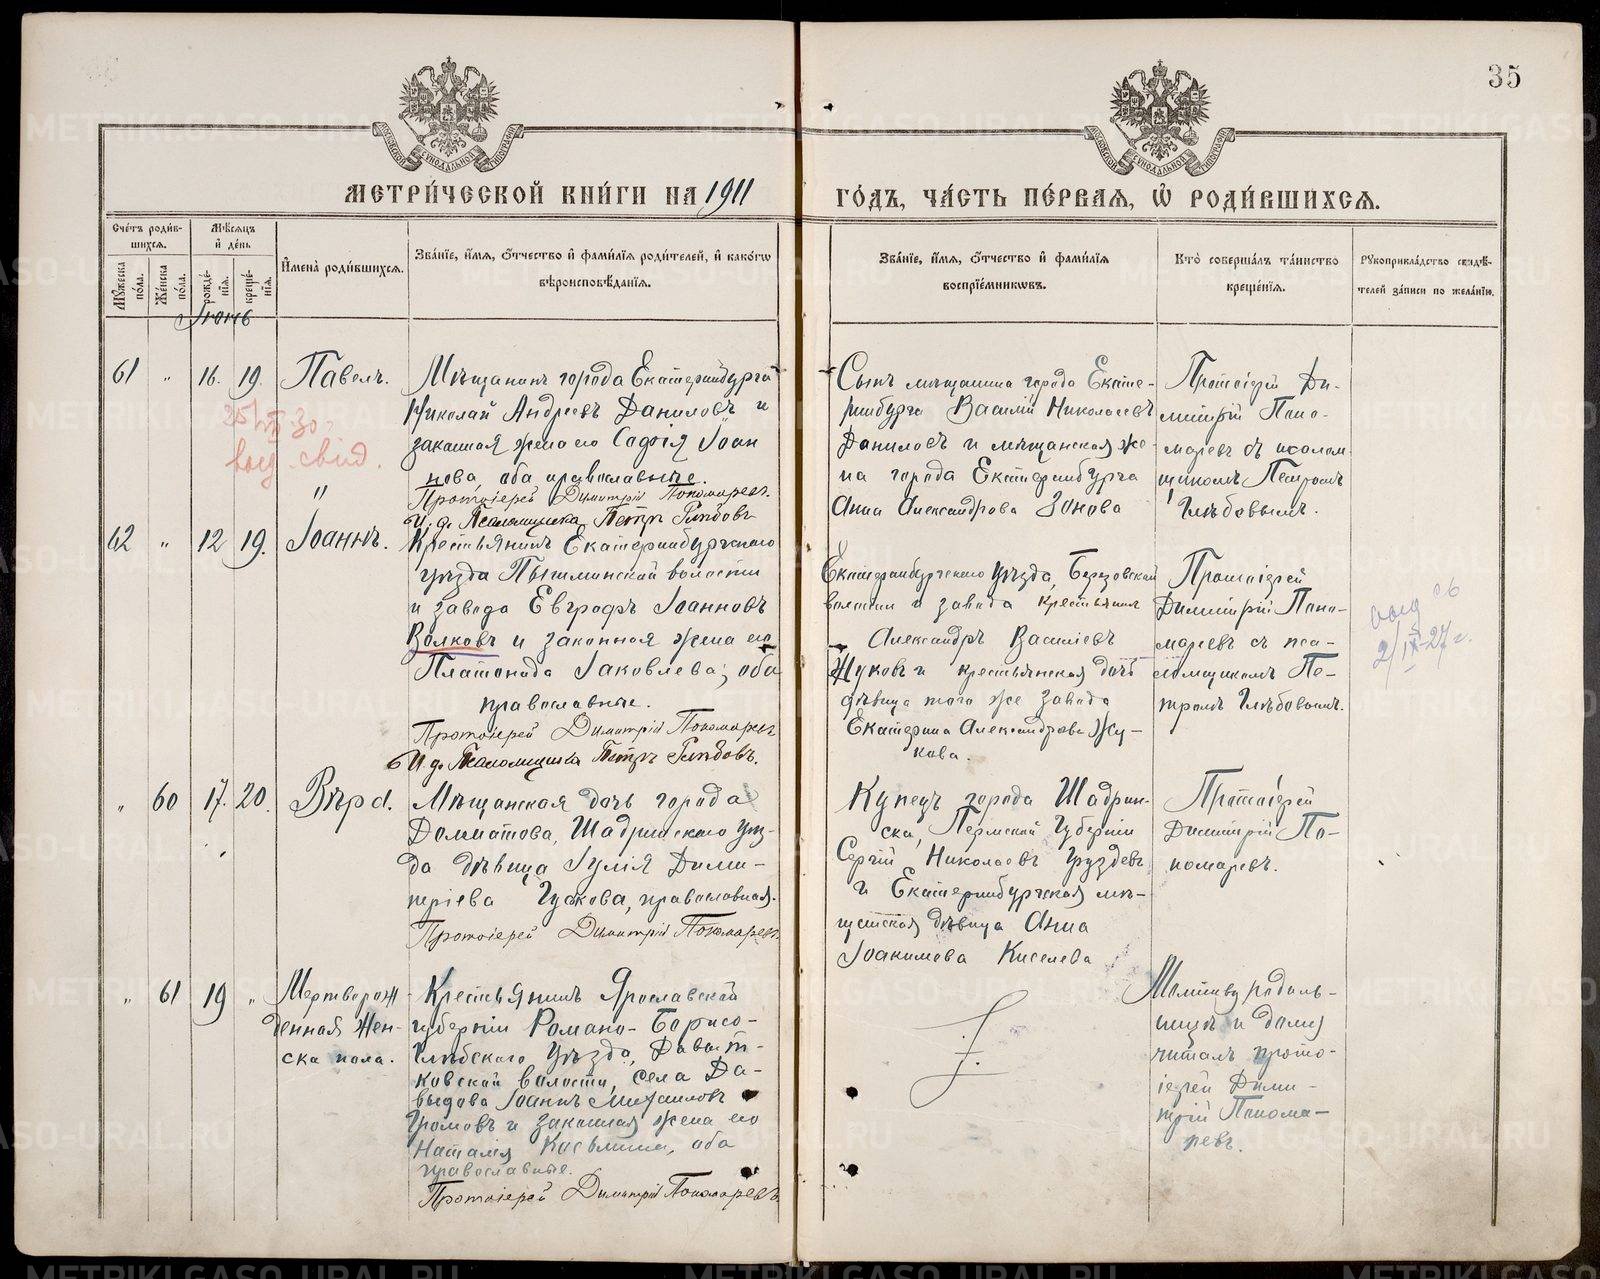 35
МЕТРИ́ЧЕСКОЙ КНИ́ГИ НА 1911
ГО́ДЪ, ЧА́СТЬ ПЕ́РВАЯ, Ѽ РОДИ́ВШИХСЯ.
МОСКОВСКОЙ СѴНОДАЛЬНОЙ ТИПОГРАФІИ
МОСКОВСКОЙ СѴНОДАЛЬНОЙ ТИПОГРАФІИ
Сче́тъ роди́в-
шихся.
Мѣ́сяцъ
и де́нь
Му́жеска по́ла.
Же́нска по́ла.
рожде́-
нія.
креще́-
нія.
Имена̀ роди́вшихся.
Зва́ніе, и́мя, о́тчество и фами́лія роди́телей, и како́гѡ
вѣроисповѣ́данія.
Зва́ніе, и́мя, о́тчество и фами́лія
воспріе́мниковъ.
Кто̀ соверша́лъ та́инство
креще́нія.
Рукоприкла́дство свидѣ́-
телей за́писи по жела́нію.
Іюнь
61 " 16. 19. Павелъ.
Мѣщанинъ города Екатеринбурга
Николай Андреевъ Даниловъ и
законная жена его Софія Іоан
нова, оба православные.
Протоіерей Димитрій Пономаревъ.
И. д. Псаломщика Петръ Глѣбовъ
Сынъ мѣщанина города Екате-
ринбурга Василій Николаевъ
Даниловъ и мѣщанская же-
на города Екатеринбурга
Анна Александрова Зонова
Протоіерей Ди-
митрій Поно-
маревъ съ псалом-
щикомъ Петромъ
Глѣбовымъ.
30
выд. свид.
"
62 " 12 19. Іоаннъ.
Крестьянинъ Екатеринбургскаго
уѣзда Пышминской волости
и завода Евграфъ Іоанновъ
Волковъ и законная жена его
Платонида Іаковлева; оба
православные.
Протоіерей Димитрій Пономаревъ
И. д. Псаломщика Петръ Глѣбовъ.
Екатеринбургскаго уѣзда, Березовской
волости и завода крестьянинъ
Александръ Василіевъ
Жуковъ и крестьянская дочь
дѣвица того же завода
Екатерина Александрова Жу-
кова.
Протоіерей
Димитрій Поно-
маревъ съ пса-
ломщикомъ Пе-
тромъ Глѣбовымъ.
выд св
2/IX-27 г.
" 60 17. 20. Вѣра.
Мѣщанская дочь города
Далматова, Шадринскаго уѣз-
да дѣвица Іулія Дими-
тріева Гускова, православная.
Протоіерей Димитрій Пономаревъ.
Купецъ города Шадрин-
ска, Пермской губерніи
Сергій Николаевъ Груздевъ
и Екатеринбургская мѣ-
щанская дѣвица Анна
Іоакимова Киселева
Протоіерей
Димитрій По-
номаревъ.
" 61 19 " Мертворож
денная Жен-
ска пола.
Крестьянинъ Ярославской
губерніи Романо-Борисо-
глѣбскаго уѣзда, Давыд-
ковской волости, села Да-
выдова Іоаннъ Михаиловъ
Громовъ и законная жена его
Наталія Косьмина, оба
православные.
Протоіерей Димитрій Пономаревъ
Молитву родиль-
ницѣ и дому
читалъ прото-
іерей Дими-
трій Понома-
ревъ.